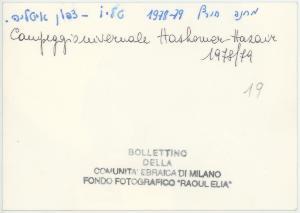 מחנה חורף 1978-79 טליו - צפון איטליה.
Campeggio invernale Hashomer-Hazair
1978/79
19
BOLLETTINO
DELLA
COMUNITA' EBRAICA DI MILANO
FONDO FOTOGRAFICO "RAOUL ELIA"